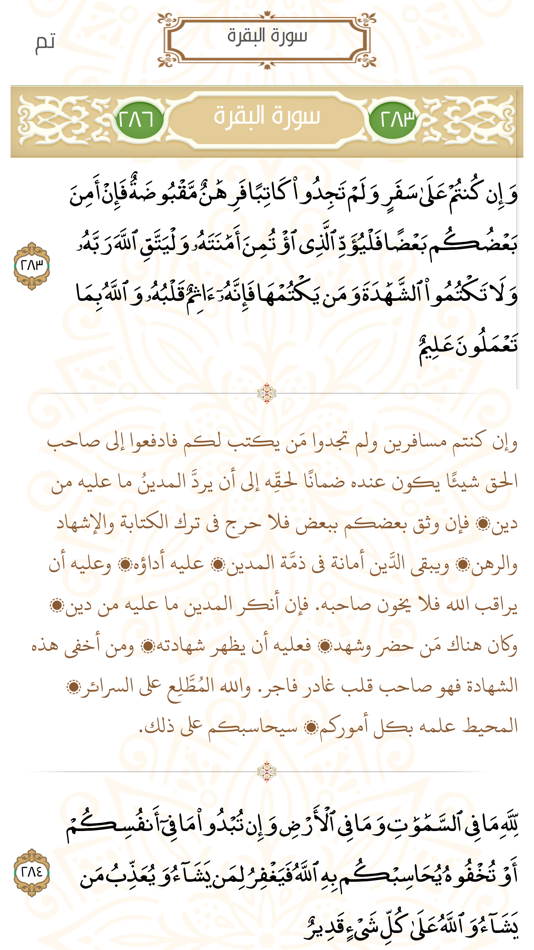 سورة البقرة
تم
٢٨٣ سورة البقرة ٢٨٦
وَإِن كُنتُمْ عَلَىٰ سَفَرٍ وَلَمْ تَجِدُوا۟ كَاتِبًا فَرِهَٰنٌ مَّقْبُوضَةٌ فَإِنْ أَمِنَ
بَعْضُكُم بَعْضًا فَلْيُؤَدِّ ٱلَّذِى ٱؤْتُمِنَ أَمَٰنَتَهُۥ وَلْيَتَّقِ ٱللَّهَ رَبَّهُۥ
٢٨٣
وَلَا تَكْتُمُوا۟ ٱلشَّهَٰدَةَ وَمَن يَكْتُمْهَا فَإِنَّهُۥٓ ءَاثِمٌ قَلْبُهُۥ وَٱللَّهُ بِمَا
تَعْمَلُونَ عَلِيمٌ
وإن كنتم مسافرين ولم تجدوا مَن يكتب لكم فادفعوا إلى صاحب
الحق شيئًا يكون عنده ضمانًا لحقِّه إلى أن يردَّ المدينُ ما عليه من
دين۞ فإن وثق بعضكم ببعض فلا حرج فى ترك الكتابة والإشهاد
والرهن۞ ويبقى الدَّين أمانة فى ذمَّة المدين۞ عليه أداؤه۞ وعليه أن
يراقب الله فلا يخون صاحبه. فإن أنكر المدين ما عليه من دين۞
وكان هناك مَن حضر وشهد۞ فعليه أن يظهر شهادته۞ ومن أخفى هذه
الشهادة فهو صاحب قلب غادر فاجر. والله المُطَّلِع على السرائر۞
المحيط علمه بكل أموركم۞ سيحاسبكم على ذلك.
لِّلَّهِ مَا فِى ٱلسَّمَٰوَٰتِ وَمَا فِى ٱلْأَرْضِ وَإِن تُبْدُوا۟ مَا فِىٓ أَنفُسِكُمْ
أَوْ تُخْفُوهُ يُحَاسِبْكُم بِهِ ٱللَّهُ فَيَغْفِرُ لِمَن يَشَآءُ وَيُعَذِّبُ مَن
٢٨٤
يَشَآءُ وَٱللَّهُ عَلَىٰ كُلِّ شَىْءٍ قَدِيرٌ